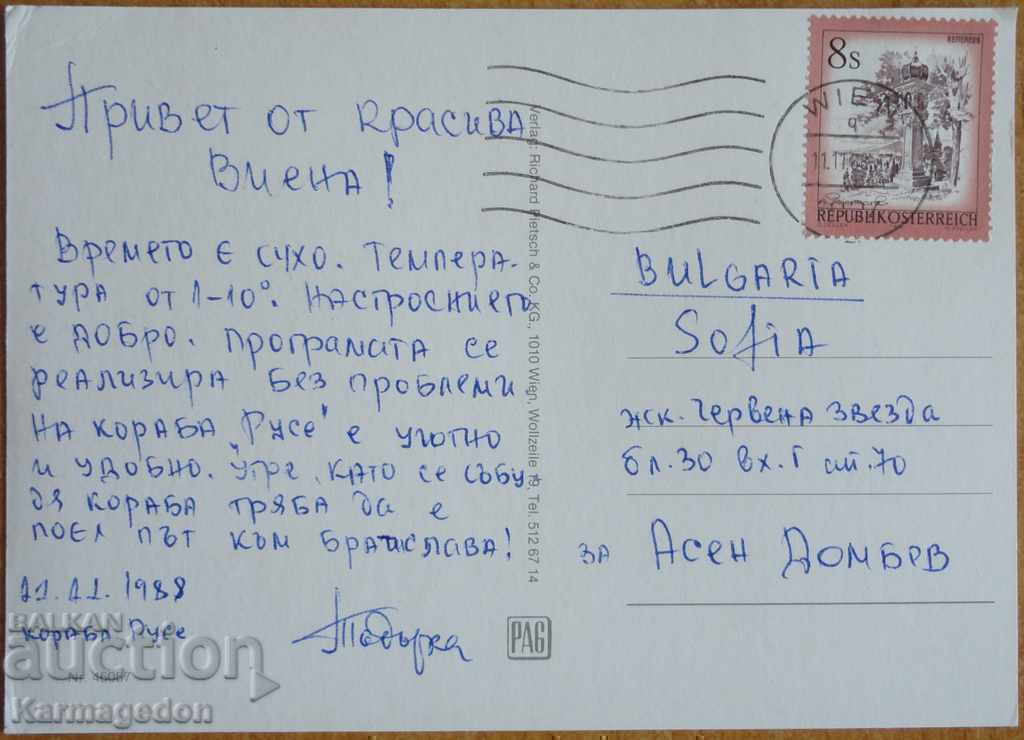 Привет от красива
Виена!
Времето е сухо. Темпера-
тура от 1-10°. Настроението
е добро. Програмата се
реализира без проблеми
На кораба „Русе“ е уютно
и удобно. Утре, като се събу
дя кораба трябва да е
поел път към Братислава!
11.11.1988
кораба Русе
Тодорка
Nr. 46087
Verlag: Richard Pietsch & Co. KG., 1010 Wien, Wollzeile 19, Tel. 512 67 14
PAG
8s
REPUBLIK ÖSTERREICH
WIE
11.11
BULGARIA
Sofia
жк. Червена звезда
бл. 30 вх. Г ап. 70
за Асен Домбев
BALKAN
auction
Karmagedon